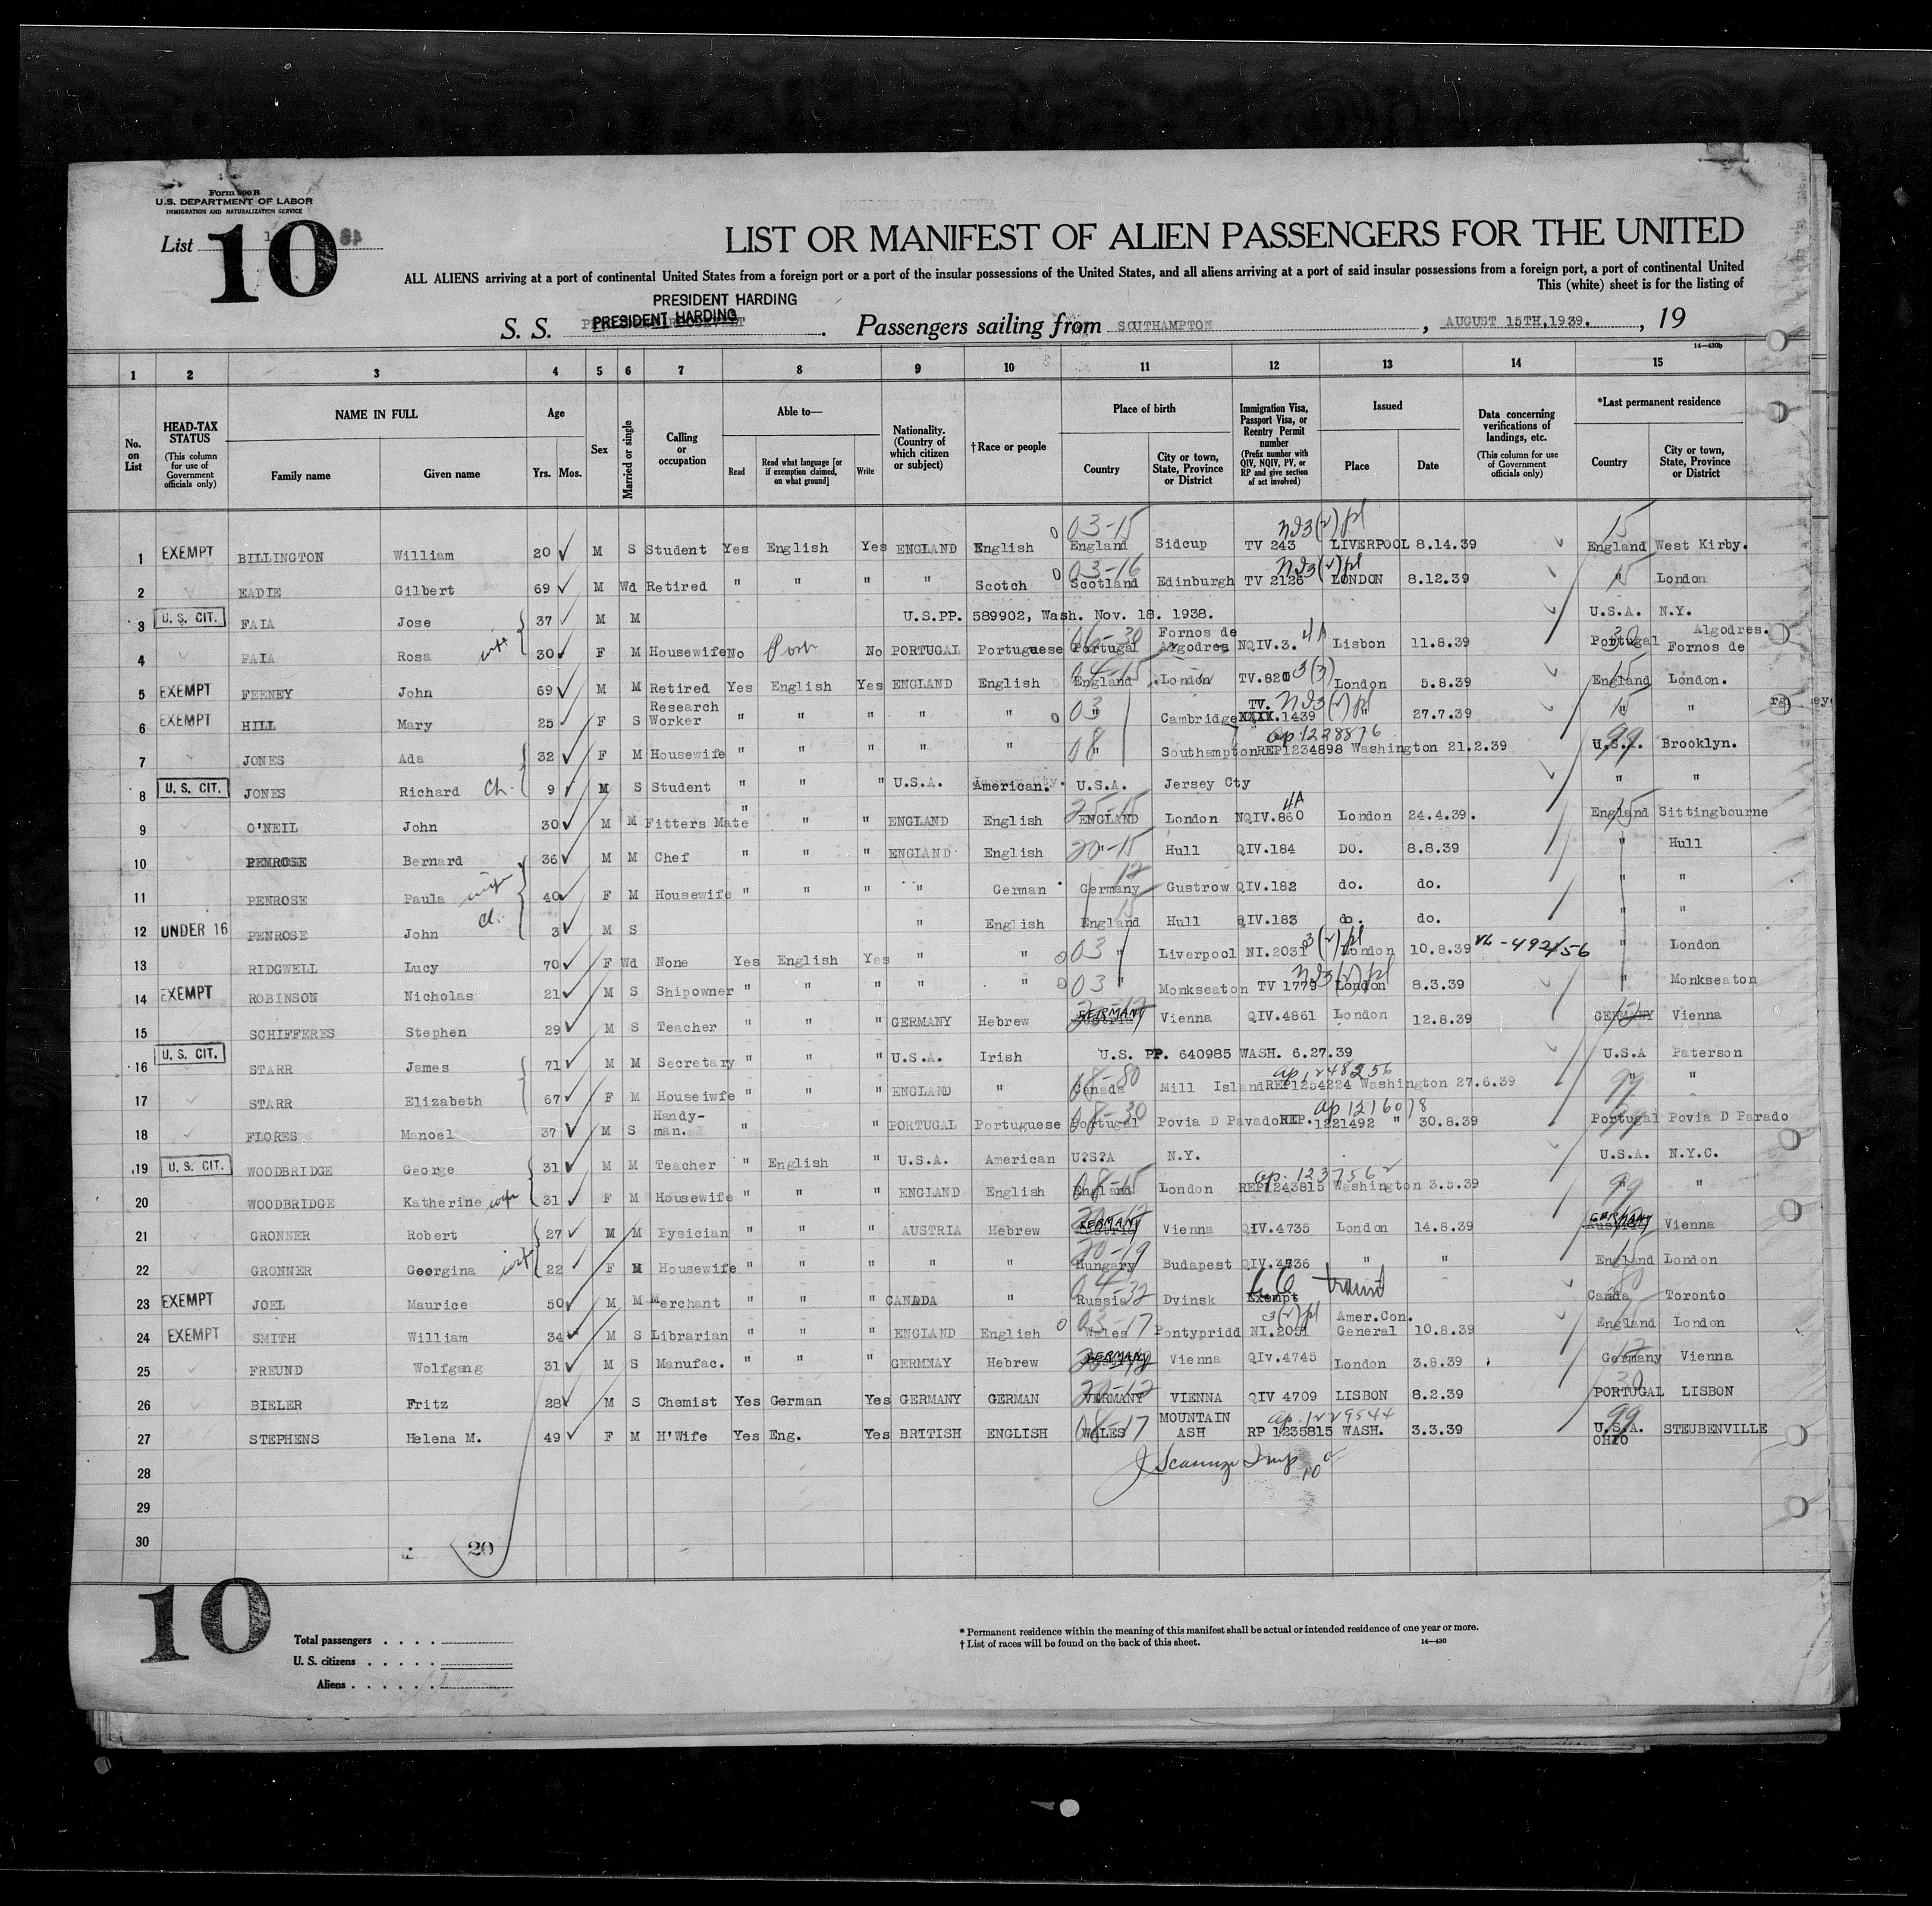 Form 500 B
U.S. DEPARTMENT OF LABOR
IMMIGRATION AND NATURALIZATION SERVICE
List 10
LIST OR MANIFEST OF ALIEN PASSENGERS FOR THE UNITED
ALL ALIENS arriving at a port of continental United States from a foreign port or a port of the insular possessions of the United States, and all aliens arriving at a port of said insular possessions from a foreign port, a port of continental United
This (white) sheet is for the listing of
PRESIDENT HARDING
S. S. PRESIDENT HARDING Passengers sailing from SOUTHAMPTON, AUGUST 15TH,1939., 19
14—430b
1 2 3 4 5 6 7 8 9 10 11 12 13 14 15
No. on List
HEAD-TAX STATUS (This column for use of Government officials only)
NAME IN FULL Family name Given name
Age Yrs. Mos.
Sex
Married or single
Calling or occupation
Able to— Read Read what language [or if exemption claimed, on what ground] Write
Nationality. (Country of which citizen or subject)
†Race or people
Place of birth Country City or town, State, Province or District
Immigration Visa, Passport Visa, or Reentry Permit number (Prefix number with QIV, NQIV, PV, or RP and give section of act involved)
Issued Place Date
Data concerning verifications of landings, etc. (This column for use of Government officials only)
*Last permanent residence Country City or town, State, Province or District
03-15 15
1 EXEMPT BILLINGTON William 20 M S Student Yes English Yes ENGLAND English England Sidcup TV 243 LIVERPOOL 8.14.39 England West Kirby.
03-16
2 EADIE Gilbert 69 M Wd Retired " " " " Scotch Scotland Edinburgh TV 2126 LONDON 8.12.39 " London
3 U. S. CIT. FAIA Jose 37 M M U.S.PP. 589902, Wash. Nov. 18. 1938. U.S.A. N.Y.
4 FAIA Rosa 30 F M Housewife No Port No PORTUGAL Portuguese Portugal Fornos de Algodres NQIV.3. 4A Lisbon 11.8.39 Portugal Algodres. Fornos de
5 EXEMPT FEENEY John 69 M M Retired Yes English Yes ENGLAND English England London TV.820 3(3) London 5.8.39 England London.
6 EXEMPT HILL Mary 25 F S Research Worker " " " " " 03 " Cambridge TV. XXXX.1439 " 27.7.39 " "
ap 1228876
7 JONES Ada 32 F M Housewife " " " " " 08 " Southampton REP1234898 Washington 21.2.39 U.S.A. Brooklyn.
8 U. S. CIT. JONES Richard Ch. 9 M S Student " " " U.S.A. American. U.S.A. Jersey Cty " "
9 O'NEIL John 30 M M Fitters Mate " " " ENGLAND English ENGLAND London NQIV.860 4A London 24.4.39. England Sittingbourne
10 PENROSE Bernard 36 M M Chef " " " ENGLAND English 20-15 " Hull QIV.184 DO. 8.8.39 " Hull
11 PENROSE Paula wife 40 F M Housewife " " " " German Germany 12 Gustrow QIV.182 do. do. " "
12 UNDER 16 PENROSE John Ch. 3 M S " English England Hull QIV.183 do. do. " "
13 RIDGWELL Lucy 70 F Wd None Yes English Yes " " 03 " Liverpool NI.2031 London 10.8.39 " London
14 EXEMPT ROBINSON Nicholas 21 M S Shipowner " " " " " 03 " Monkseaton TV 1779 London 8.3.39 " Monkseaton
15 SCHIFFERES Stephen 29 M S Teacher " " " GERMANY Hebrew GERMANY Vienna QIV.4861 London 12.8.39 GERMANY Vienna
16 U. S. CIT. STARR James 71 M M Secretary " " " U.S.A. Irish U.S. PP. 640985 WASH. 6.27.39 U.S.A Paterson
ap 1248256
17 STARR Elizabeth 67 F M Houseiwfe " " " ENGLAND " Canada Mill Island REP1254224 Washington 27.6.39 " "
ap 1216078
18 FLORES Manoel 37 M S Handy-man. " " PORTUGAL Portuguese Portugal Povia D Pavado REP. 1221492 " 30.8.39 Portugal Povia D Parado
19 U. S. CIT. WOODBRIDGE George 31 M M Teacher " English " U.S.A. American U?S?A N.Y. U.S.A. N.Y.C.
ap. 1237562
20 WOODBRIDGE Katherine wife 31 F M Housewife " " " ENGLAND English England London REP1243815 Washington 3.5.39 " "
21 GRONNER Robert 27 M M Pysician " " " AUSTRIA Hebrew GERMANY Vienna QIV.4735 London 14.8.39 GERMANY Vienna
20-19
22 GRONNER Georgina wife 22 F M Housewife " " " " " Hungary Budapest QIV.4736 " " England London
23 EXEMPT JOEL Maurice 50 M M Merchant " " " CANADA " Russia Dvinsk Exempt transit Canda Toronto
24 EXEMPT SMITH William 34 M S Librarian " " " ENGLAND English 03-17 Wales Pontypridd NI.2051 Amer.Con. General 10.8.39 England London
25 FREUND Wolfgang 31 M S Manufac. " " " GERMNAY Hebrew GERMANY Vienna QIV.4745 London 3.8.39 Germany Vienna
26 BIELER Fritz 28 M S Chemist Yes German Yes GERMANY GERMAN GERMANY VIENNA QIV 4709 LISBON 8.2.39 PORTUGAL LISBON
ap. 1229544
27 STEPHENS Helena M. 49 F M H'Wife Yes Eng. Yes BRITISH ENGLISH WALES MOUNTAIN ASH RP 1235815 WASH. 3.3.39 U.S.A. OHIO STEUBENVILLE
28
29
30
20
10
Total passengers
U. S. citizens
Aliens
* Permanent residence within the meaning of this manifest shall be actual or intended residence of one year or more.
† List of races will be found on the back of this sheet.
14—430